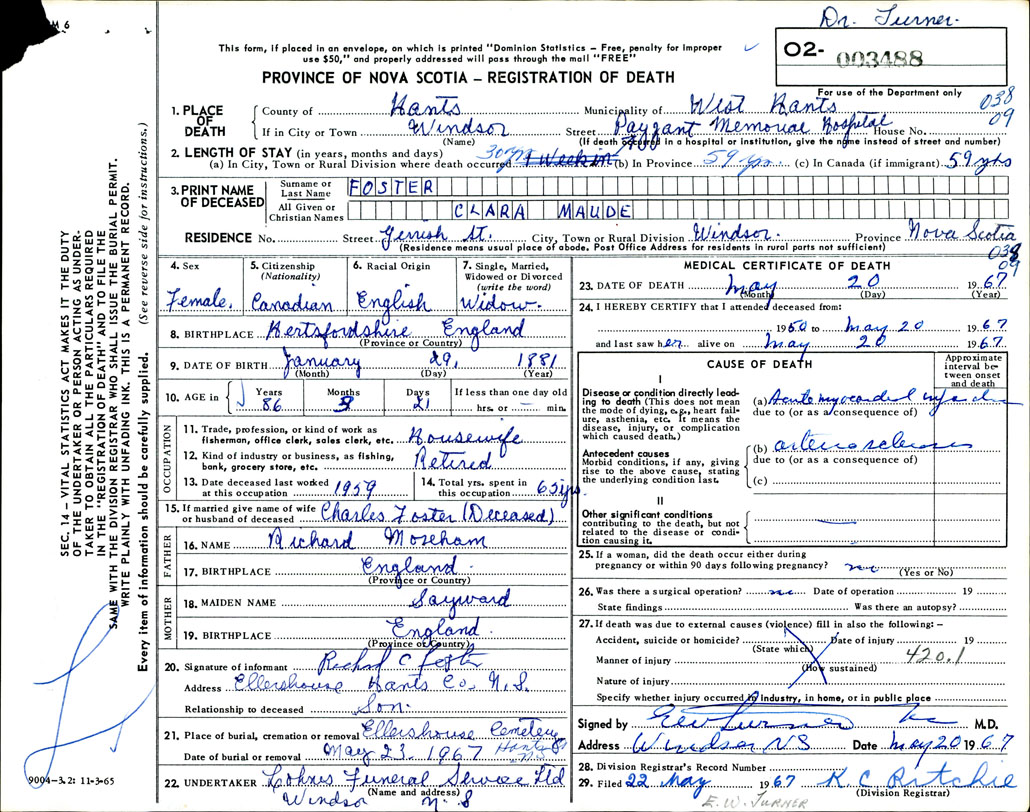 Dr. Turner.
FORM 6
This form, if placed in an envelope, on which is printed "Dominion Statistics – Free, penalty for improper
use $50," and properly addressed will pass through the mail "FREE"
O2- 003488
PROVINCE OF NOVA SCOTIA – REGISTRATION OF DEATH
For use of the Department only
1. PLACE OF DEATH
County of Hants Municipality of West Hants 038
If in City or Town Windsor Street Payzant Memorial Hospital House No. 09
(Name) (If death occurred in a hospital or institution, give the name instead of street and number)
2. LENGTH OF STAY (in years, months and days)
(a) In City, Town or Rural Division where death occurred 30 yrs 1 Week in (b) In Province 59 yrs. (c) In Canada (if immigrant) 59 yrs
3. PRINT NAME OF DECEASED
Surname or Last Name FOSTER
All Given or Christian Names CLARA MAUDE
RESIDENCE No. Street Gerrish St. City, Town or Rural Division Windsor. Province Nova Scotia
(Residence means usual place of abode. Post Office Address for residents in rural parts not sufficient) 038
09
4. Sex Female.
5. Citizenship (Nationality) Canadian
6. Racial Origin English
7. Single, Married, Widowed or Divorced (write the word) Widow.
8. BIRTHPLACE Hertsfordshire England
(Province or Country)
9. DATE OF BIRTH January 29, 1881
(Month) (Day) (Year)
10. AGE in Years 86 Months 3 Days 21 If less than one day old hrs. or min.
OCCUPATION
11. Trade, profession, or kind of work as
fisherman, office clerk, sales clerk, etc. Housewife
12. Kind of industry or business, as fishing,
bank, grocery store, etc. Retired
13. Date deceased last worked
at this occupation 1959
14. Total yrs. spent in
this occupation 65 yrs
15. If married give name of wife
or husband of deceased Charles Foster (Deceased)
FATHER
16. NAME Richard Moseham
17. BIRTHPLACE England
(Province or Country)
MOTHER
18. MAIDEN NAME Sayward
19. BIRTHPLACE England
(Province or Country)
20. Signature of informant Richard C Foster
Address Ellershouse Hants Co. N.S.
Relationship to deceased Son.
21. Place of burial, cremation or removal Ellershouse Cemetery
Date of burial or removal May 23, 1967 Hants Co N.S.
22. UNDERTAKER Cohns Funeral Service Ltd
(Name and address)
Windsor N.S
MEDICAL CERTIFICATE OF DEATH
23. DATE OF DEATH May 20 1967
(Month) (Day) (Year)
24. I HEREBY CERTIFY that I attended deceased from:
1960 to May 20 1967
and last saw her alive on May 20 1967.
CAUSE OF DEATH
Approximate interval between onset and death
I
Disease or condition directly leading to death (This does not mean the mode of dying, e.g., heart failure, asthenia, etc. It means the disease, injury, or complication which caused death.)
(a) Acute myocardial infarction
due to (or as a consequence of)
Antecedent causes
Morbid conditions, if any, giving rise to the above cause, stating the underlying condition last.
(b) arteriosclerosis
due to (or as a consequence of)
(c)
II
Other significant conditions
contributing to the death, but not related to the disease or condition causing it.
25. If a woman, did the death occur either during
pregnancy or within 90 days following pregnancy? no
(Yes or No)
26. Was there a surgical operation? no Date of operation 19
State findings Was there an autopsy?
27. If death was due to external causes (violence) fill in also the following:–
Accident, suicide or homicide? Date of injury 19
(State which)
Manner of injury 420.1
(How sustained)
Nature of injury
Specify whether injury occurred in industry, in home, or in public place
Signed by E W Turner M.D.
Address Windsor NS Date May 20 1967
28. Division Registrar's Record Number
29. Filed 22 May 1967 K. C. Ritchie
(Division Registrar)
E. W. TURNER
SEC. 14 – VITAL STATISTICS ACT MAKES IT THE DUTY
OF THE UNDERTAKER OR PERSON ACTING AS UNDER-
TAKER TO OBTAIN ALL THE PARTICULARS REQUIRED
IN THE "REGISTRATION OF DEATH" AND TO FILE THE
SAME WITH THE DIVISION REGISTRAR WHO SHALL ISSUE THE BURIAL PERMIT.
WRITE PLAINLY WITH UNFADING INK. THIS IS A PERMANENT RECORD.
Every item of information should be carefully supplied. (See reverse side for instructions.)
9004-3.2: 11-3-65